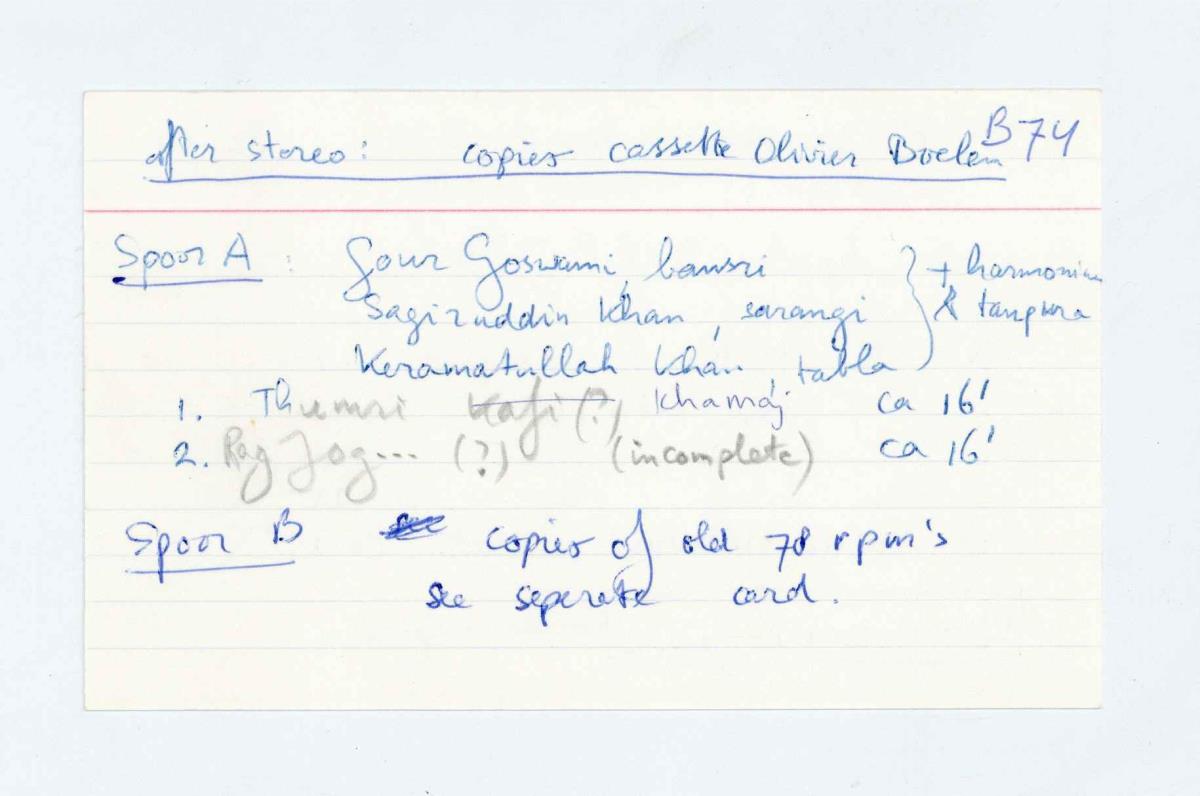 B74
after stereo: copies cassette Olivier Boelen
Spoor A : Gour Goswami, bansri
Sagiruddin Khan, sarangi
Keramatullah Khan, tabla
+ harmonium
& tanpura
1. Thumri Kafi (?) Khamáj ca 16'
2. Rag Jog... (?) (incomplete) ca 16'
Spoor B see copies of old 78 rpm's
see seperate card.